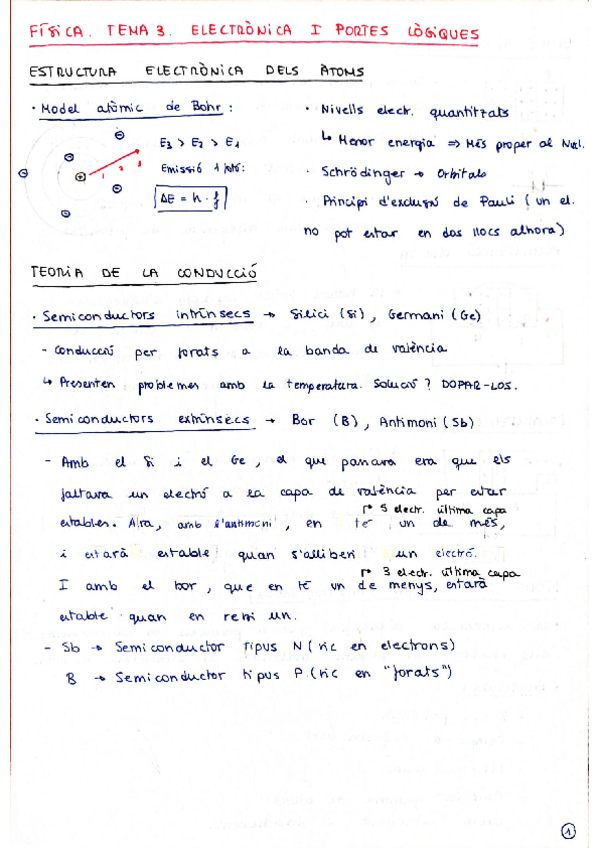 FÍSICA. TEMA 3. ELECTRÒNICA I PORTES LÒGIQUES
ESTRUCTURA ELECTRÒNICA DELS ÀTOMS
· Model atòmic de Bohr:
E3 > E2 > E1
Emissió 1 fotó:
ΔE = h · f
1 2 3
· Nivells electr. quantitzats
↳ Menor energia ⇒ Més proper al Nucl.
· Schrödinger → Orbitals
· Principi d'exclusió de Pauli (un el.
no pot estar en dos llocs alhora)
TEORIA DE LA CONDUCCIÓ
· Semiconductors intrínsecs → Silici (Si), Germani (Ge)
- Conducció per forats a la banda de valència
↳ Presenten problemes amb la temperatura. Solució? DOPAR-LOS.
· Semiconductors extrínsecs → Bor (B), Antimoni (Sb)
- Amb el Si i el Ge, el que passava era que els
faltava un electró a la capa de valència per estar
estables. Ara, amb l'antimoni, en té un de més,
↱ 5 electr. última capa
i estarà estable quan s'alliberi un electró.
I amb el bor, que en té un de menys, estarà
↱ 3 electr. última capa
estable quan en remi un.
- Sb → Semiconductor tipus N (ric en electrons)
B → Semiconductor tipus P (ric en "forats")
1